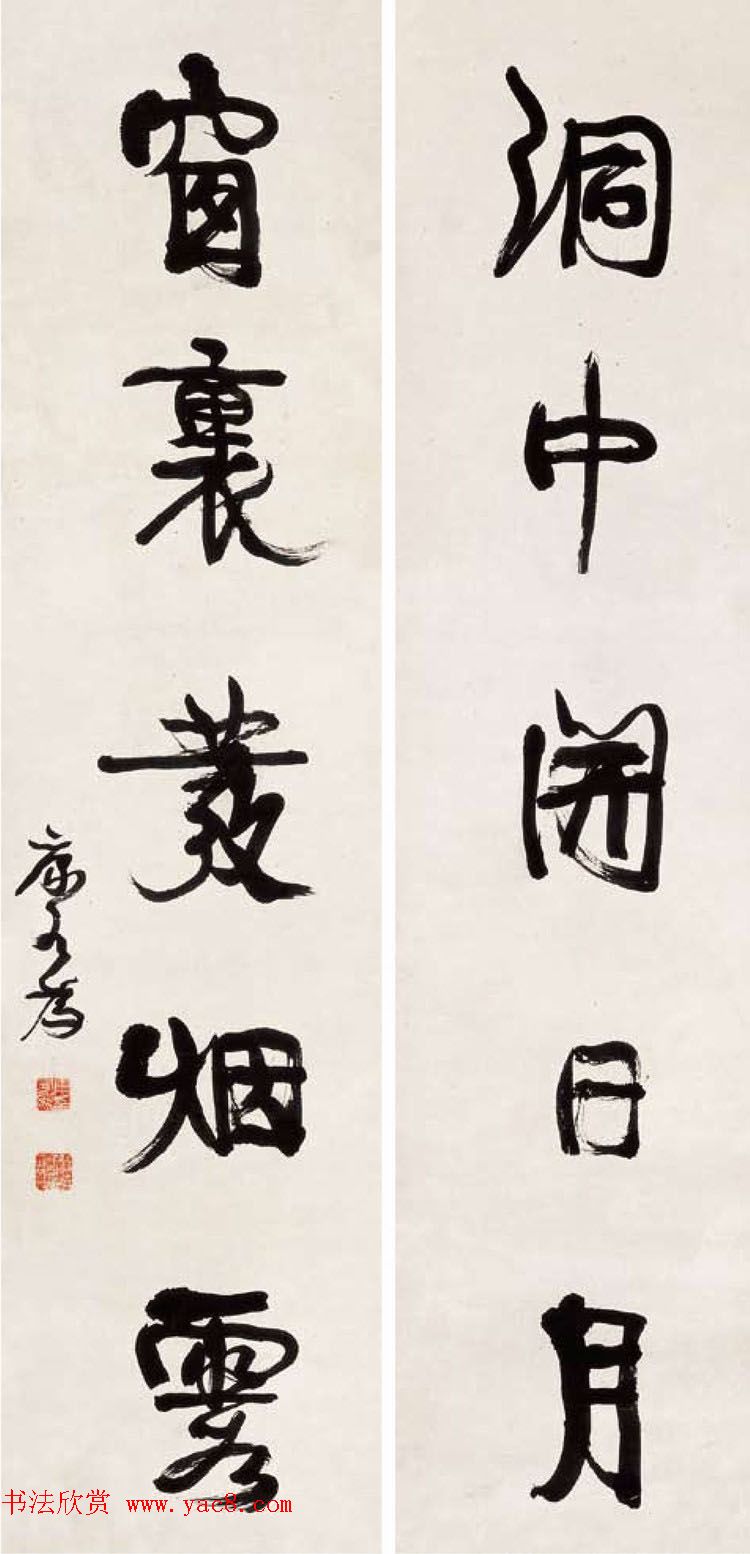 洞中開日月
窗裏發烟霞
康有為
书法欣赏 www.yac8.com